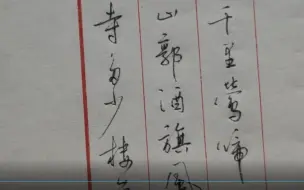 千里莺啼
山郭酒旗風
寺多少樓